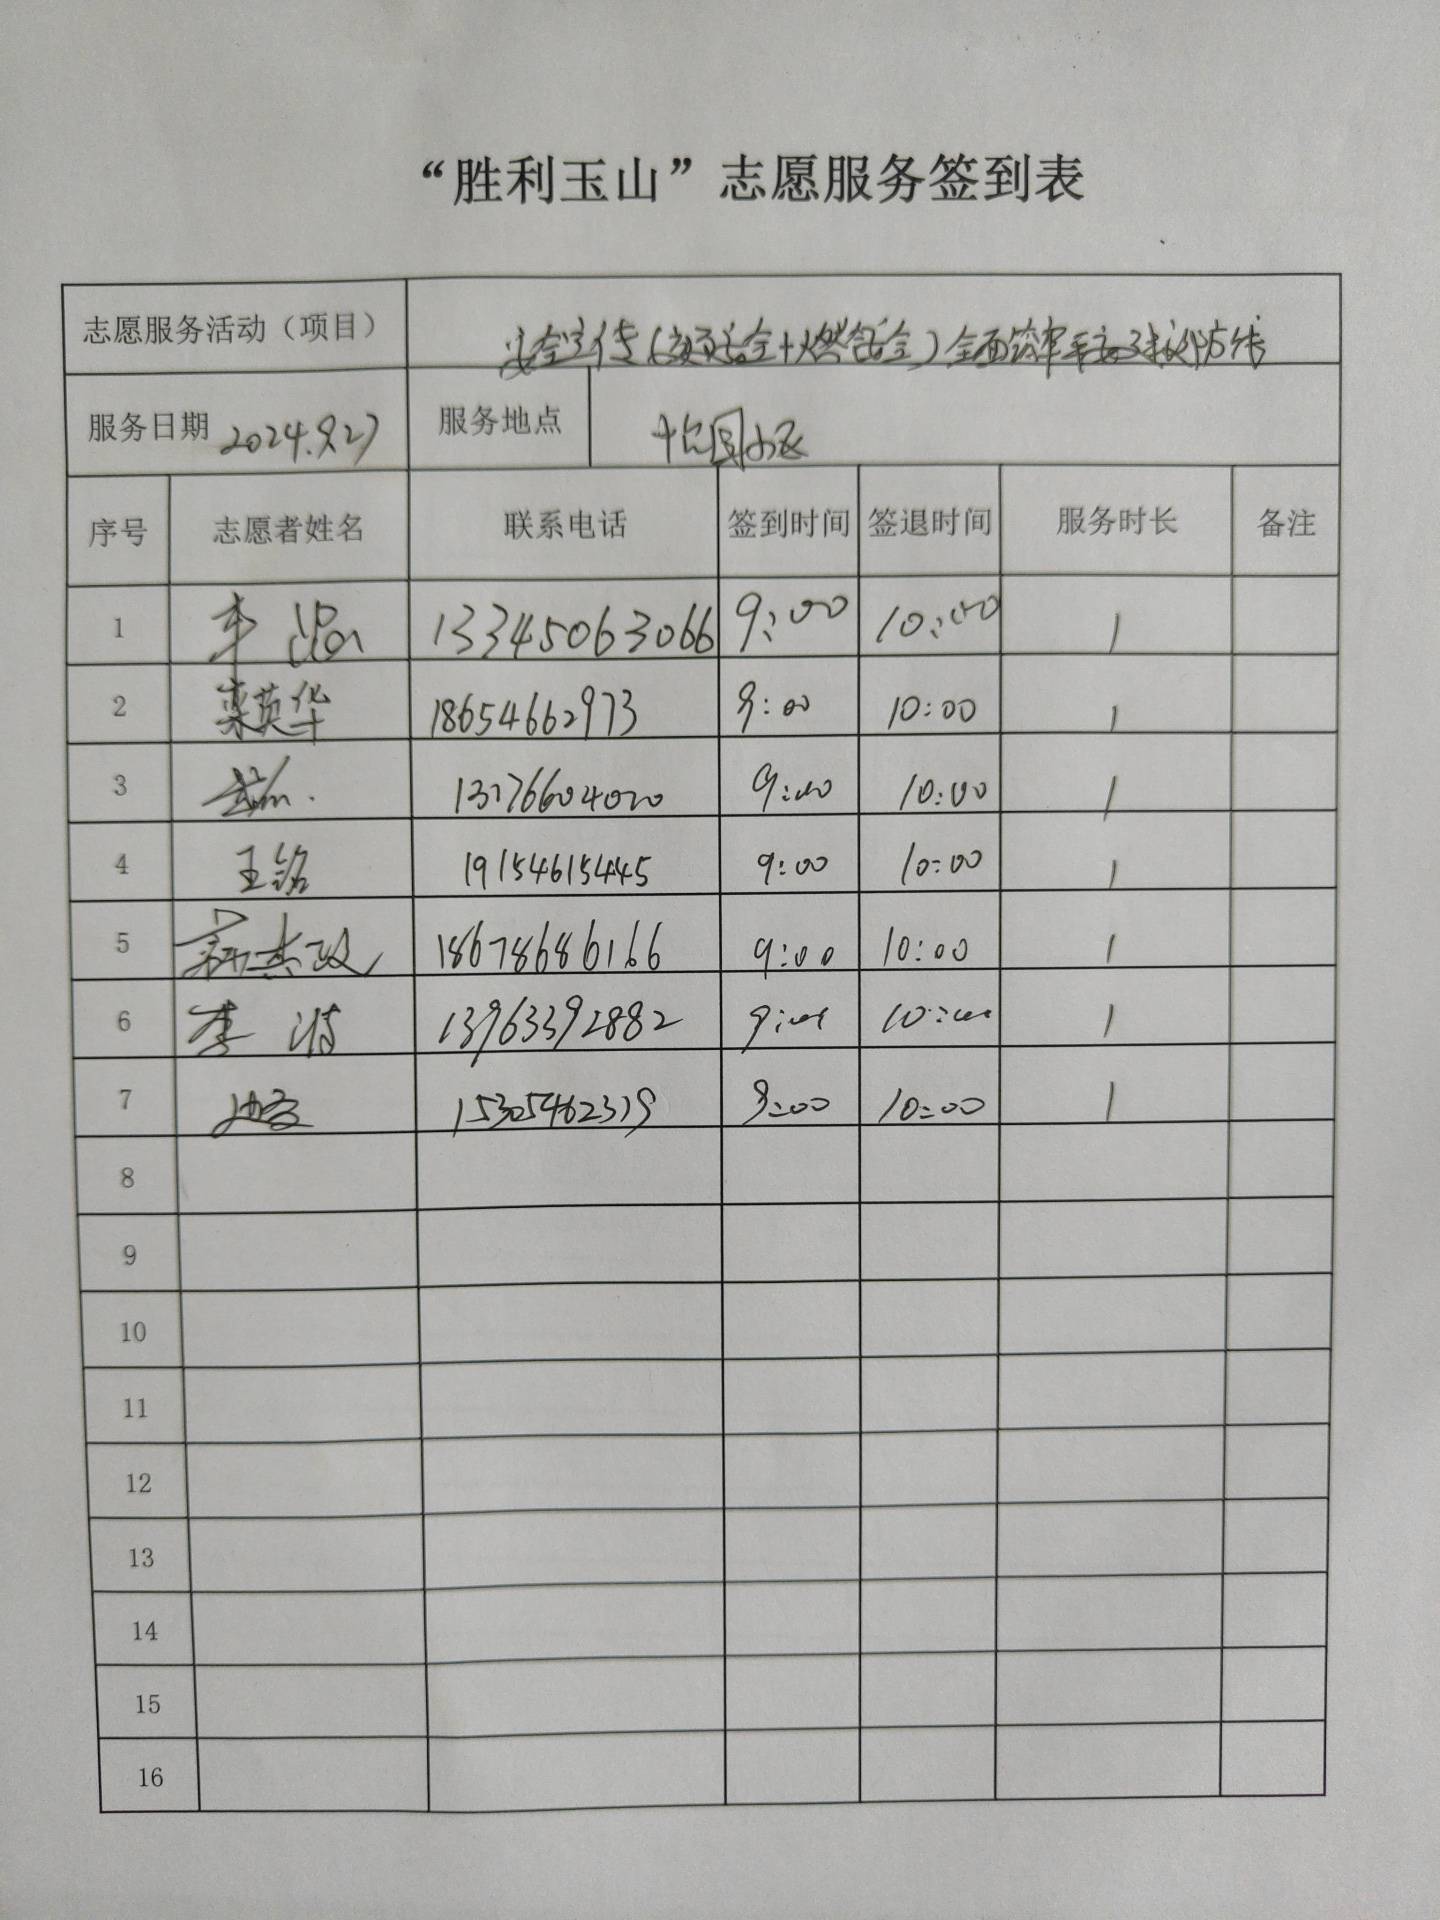 “胜利玉山”志愿服务签到表
志愿服务活动（项目） 安全宣传（ 安全+燃气安全）全面筑牢 防线
服务日期 2024.9.27 服务地点 小区
序号 志愿者姓名 联系电话 签到时间 签退时间 服务时长 备注
1 13345063066 9:00 10:00 1
2 栾英华 18654662973 9:00 10:00 1
3 13176604020 9:00 10:00 1
4 王铭 19154615445 9:00 10:00 1
5 18678686166 9:00 10:00 1
6 李涛 13963392882 9:00 10:00 1
7 15305462319 9:00 10:00 1
8
9
10
11
12
13
14
15
16